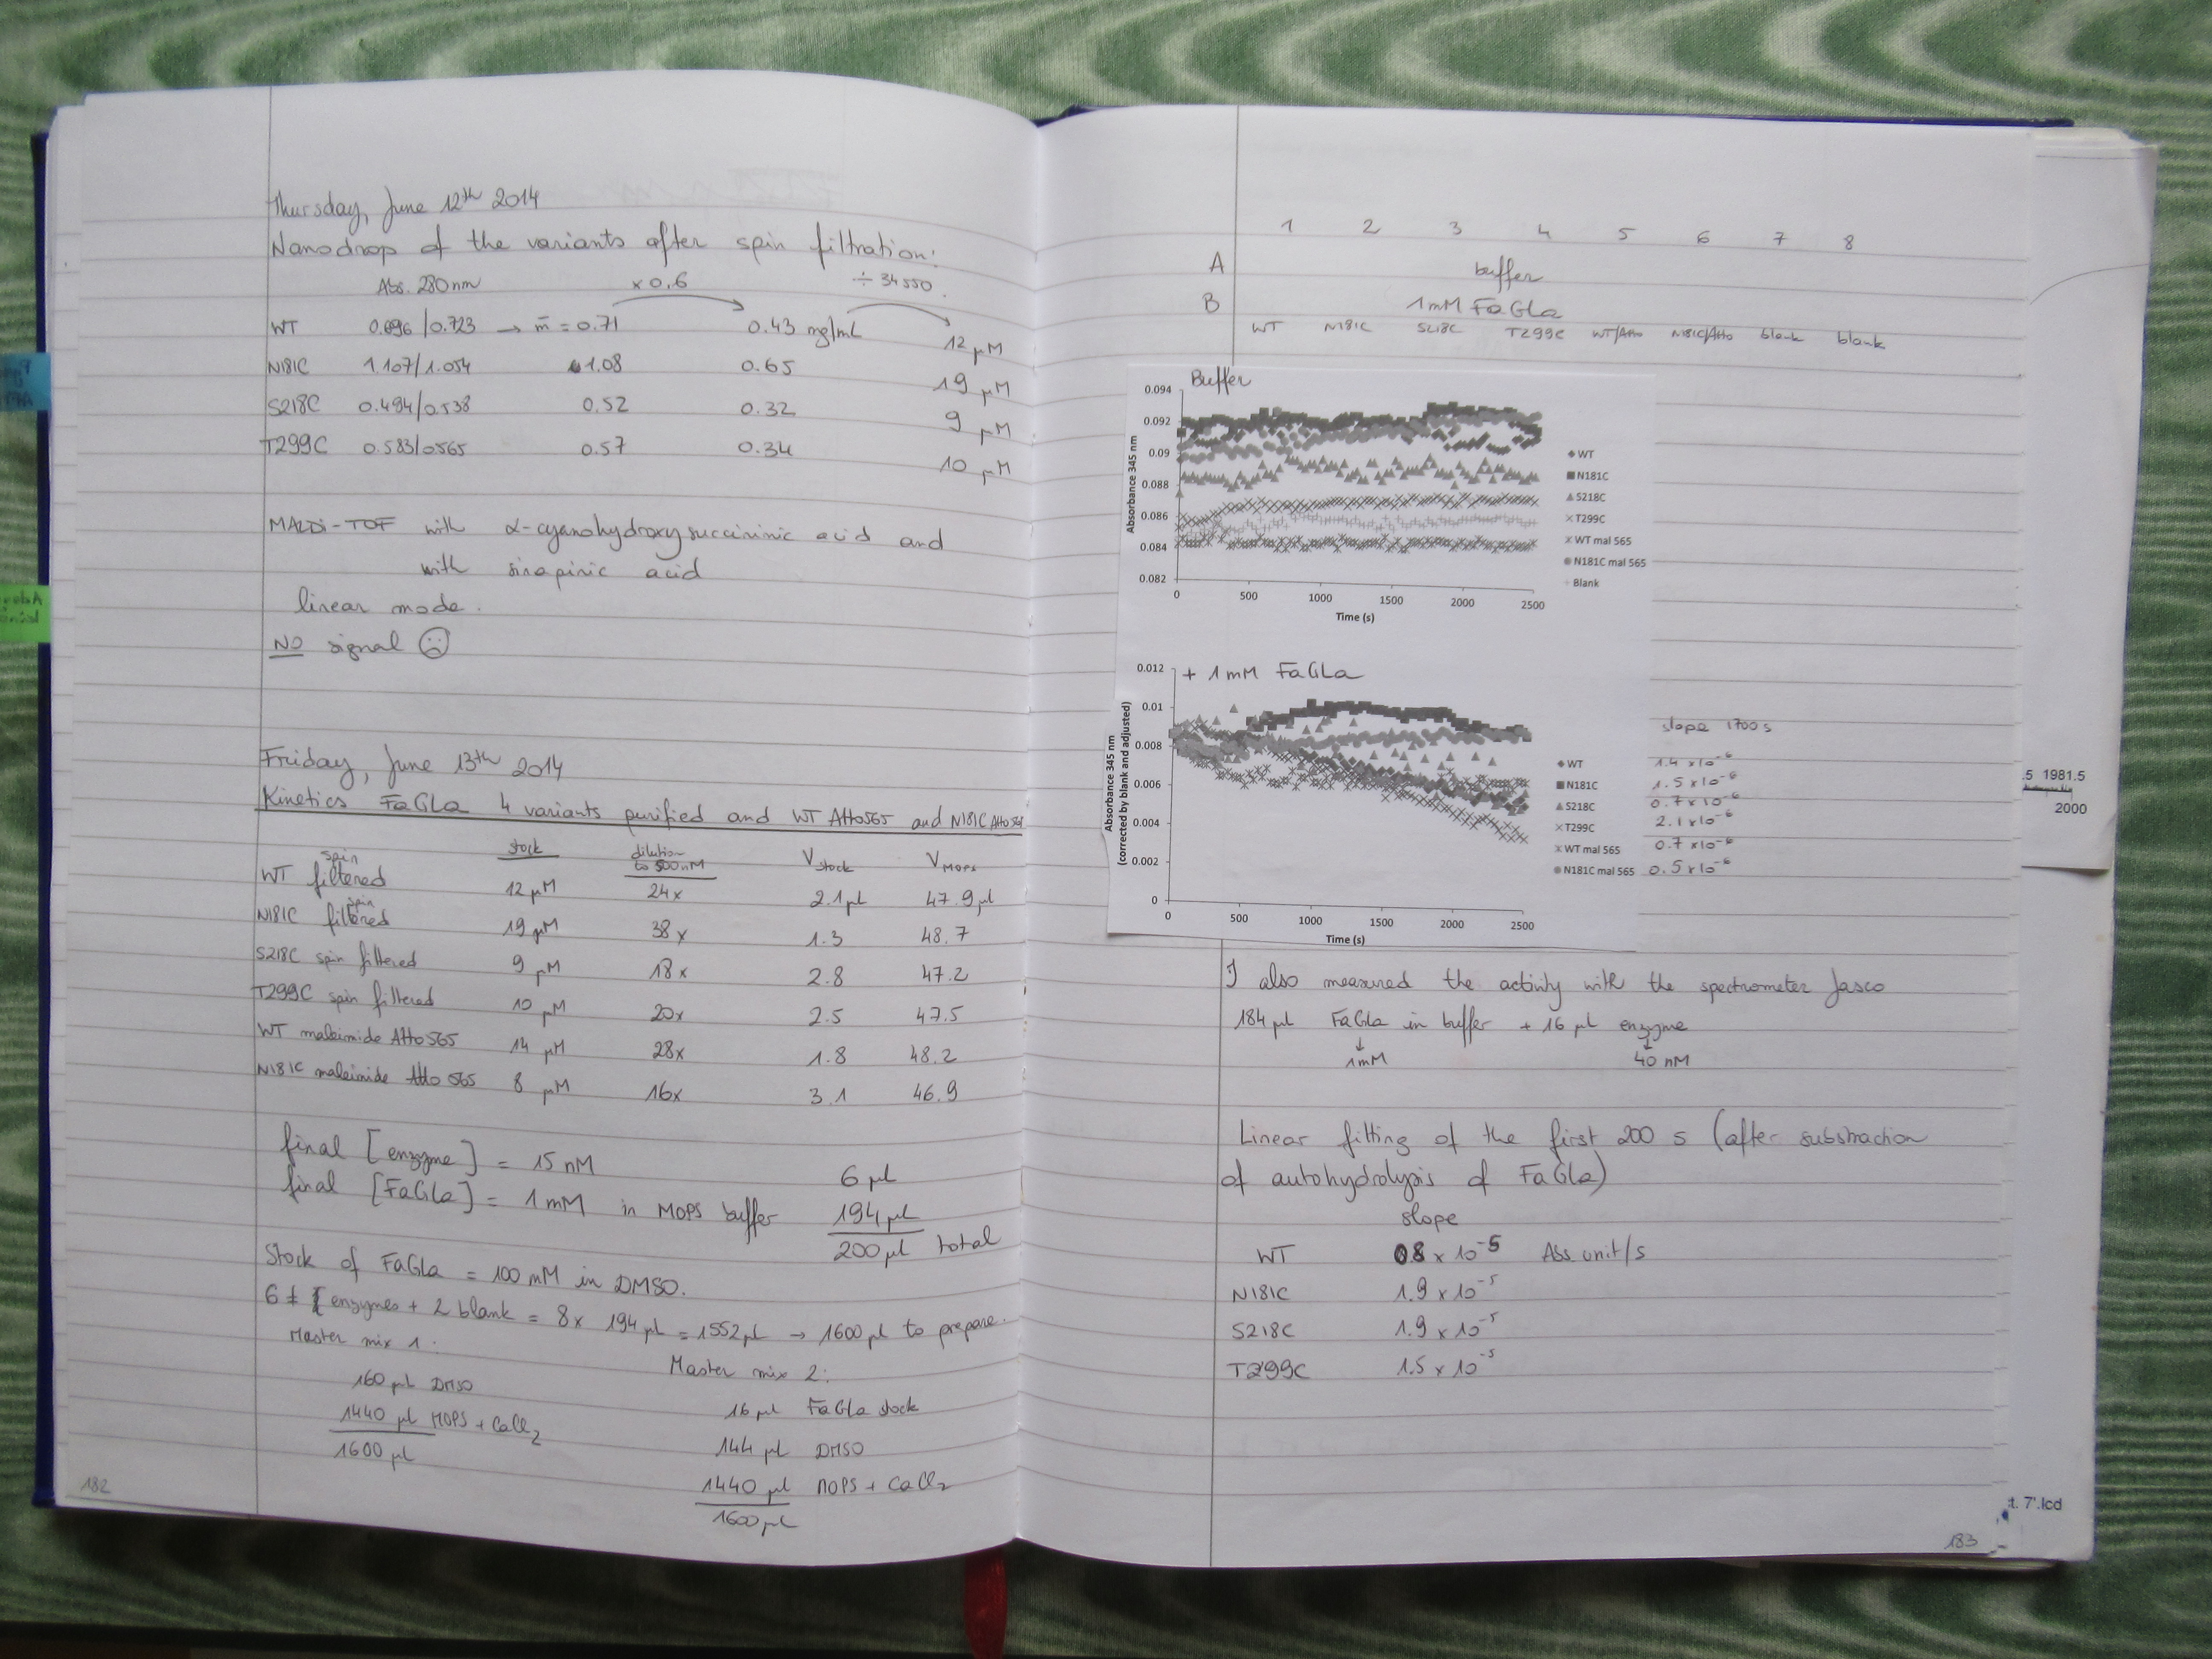 Thursday, June 12th 2014
Nanodrop of the variants after spin filtration:
Abs. 280nm x 0.6 ÷ 34550
WT 0.696/0.723 → m̄ = 0.71 0.43 mg/mL 12 µM
N181C 1.107/1.054 1.08 0.65 19 µM
S218C 0.494/0.538 0.52 0.32 9 µM
T299C 0.583/0565 0.57 0.34 10 µM
MALDI-TOF with α-cyanohydroxysuccininic acid and
with sinapinic acid
linear mode.
NO signal ☹
Friday, June 13th 2014
Kinetics FaGLa 4 variants purified and WT Atto565 and N181C Atto565
stock dilution to 500nM Vstock VMOPS
WT spin filtered 12 µM 24x 2.1 µl 47.9 µl
N181C spin filtered 19 µM 38x 1.3 48.7
S218C spin filtered 9 µM 18x 2.8 47.2
T299C spin filtered 10 µM 20x 2.5 47.5
WT maleimide Atto565 14 µM 28x 1.8 48.2
N181C maleimide Atto 565 8 µM 16x 3.1 46.9
final [enzyme] = 15 nM 6 µl
final [FaGLa] = 1 mM in MOPS buffer 194 µl
200 µl total
Stock of FaGLa = 100 mM in DMSO.
6 ≠ enzymes + 2 blank = 8x 194 µl = 1552 µl → 1600 µl to prepare.
Master mix 1:
160 µl DMSO
1440 µl MOPS + CaCl2
1600 µl
Master mix 2:
16 µl FaGLa stock
144 µl DMSO
1440 µl MOPS + CaCl2
1600 µl
182
1 2 3 4 5 6 7 8
A buffer
B 1mM FaGLa
WT N181C S218C T299C WT/Atto N181C/Atto blank blank
Buffer
0.094
0.092
0.09
0.088
0.086
0.084
0.082
Absorbance 345 nm
0 500 1000 1500 2000 2500
Time (s)
WT
N181C
S218C
T299C
WT mal 565
N181C mal 565
Blank
+ 1 mM FaGLa
0.012
0.01
0.008
0.006
0.004
0.002
0
Absorbance 345 nm
(corrected by blank and adjusted)
0 500 1000 1500 2000 2500
Time (s)
slope 1700 s
WT 1.4 x10-6
N181C 1.5 x10-6
S218C 0.7 x10-6
T299C 2.1 x10-6
WT mal 565 0.7 x10-6
N181C mal 565 0.5 x10-6
.5 1981.5
2000
I also measured the activity with the spectrometer Jasco
184 µl FaGLa in buffer + 16 µl enzyme
↓ ↓
1mM 40 nM
Linear fitting of the first 200 s (after substraction
of autohydrolysis of FaGLa)
slope
WT 08 x 10-5 Abs unit/s
N181C 1.9 x 10-5
S218C 1.9 x 10-5
T299C 1.5 x 10-5
t. 7'.lcd
183